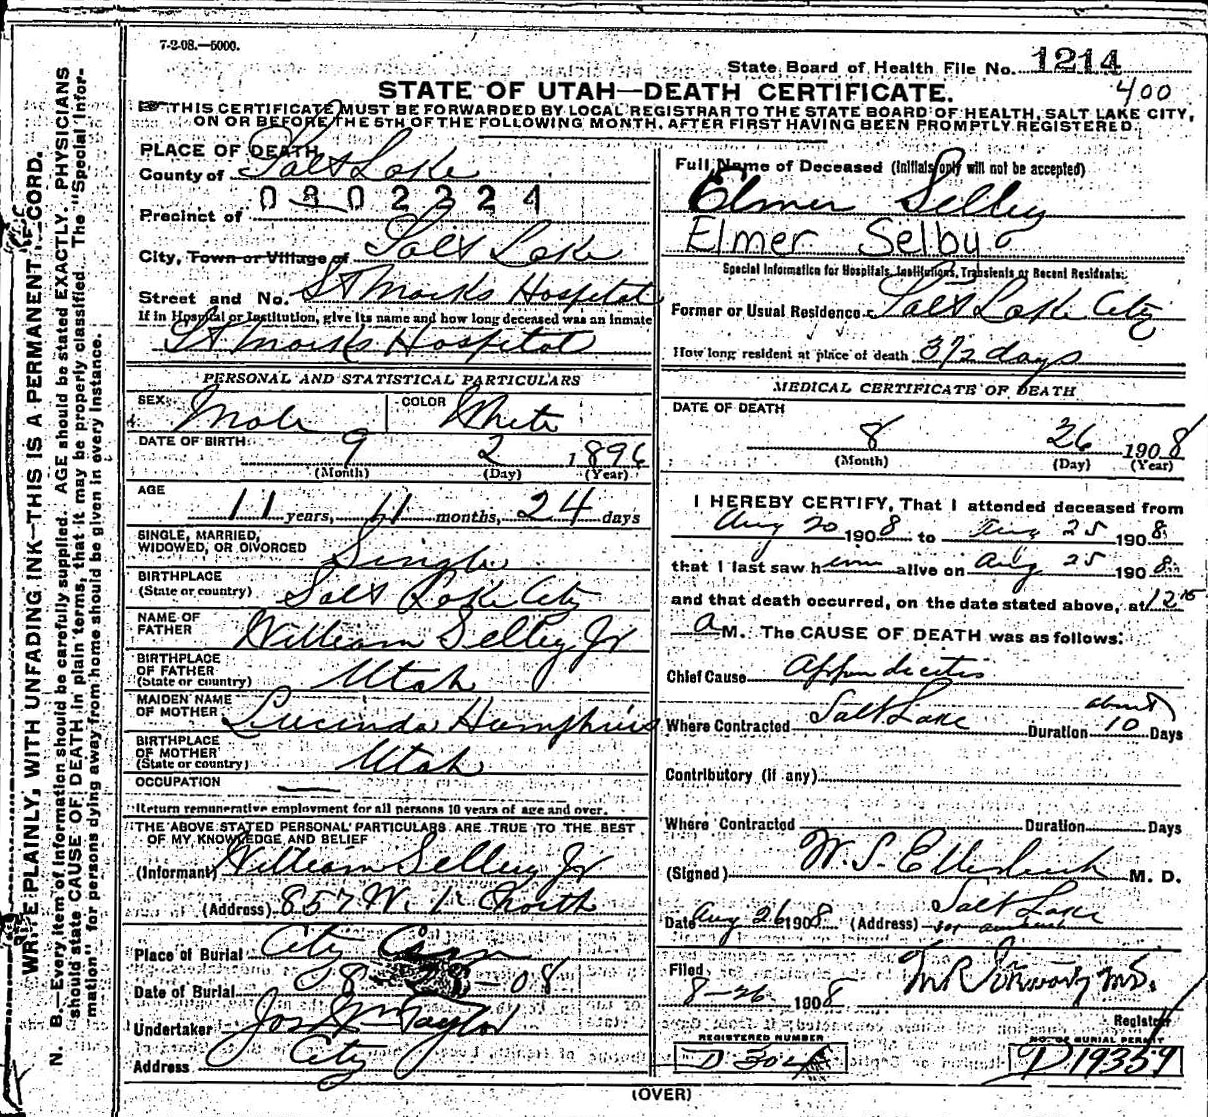 7-2-08.—5000.
State Board of Health File No. 1214
STATE OF UTAH—DEATH CERTIFICATE.
400
THIS CERTIFICATE MUST BE FORWARDED BY LOCAL REGISTRAR TO THE STATE BOARD OF HEALTH, SALT LAKE CITY,
ON OR BEFORE THE 5TH OF THE FOLLOWING MONTH, AFTER FIRST HAVING BEEN PROMPTLY REGISTERED.
WRITE PLAINLY, WITH UNFADING INK—THIS IS A PERMANENT RECORD.
N. B.—Every item of information should be carefully supplied. AGE should be stated EXACTLY. PHYSICIANS
should state CAUSE OF DEATH in plain terms, that it may be properly classified. The "Special Infor-
mation" for persons dying away from home should be given in every instance.
PLACE OF DEATH
County of Salt Lake
0802224
Precinct of
City, Town or Village of Salt Lake
Street and No. St Marks Hospital
If in Hospital or Institution, give its name and how long deceased was an inmate
St Marks Hospital
PERSONAL AND STATISTICAL PARTICULARS
SEX: Male COLOR White
DATE OF BIRTH 9 2 1896
(Month) (Day) (Year)
AGE 11 years, 11 months, 24 days
SINGLE, MARRIED,
WIDOWED, OR DIVORCED Single
BIRTHPLACE
(State or country) Salt Lake City
NAME OF
FATHER William Selby Jr
BIRTHPLACE
OF FATHER
(State or country) Utah
MAIDEN NAME
OF MOTHER Lucinda Humphris
BIRTHPLACE
OF MOTHER
(State or country) Utah
OCCUPATION —
Return remunerative employment for all persons 10 years of age and over.
THE ABOVE STATED PERSONAL PARTICULARS ARE TRUE TO THE BEST
OF MY KNOWLEDGE AND BELIEF
(Informant) William Selby Jr
(Address) 857 W. 1st North
Place of Burial City Cem
Date of Burial 8-28-08
Undertaker Jos Wm Taylor
Address City
Full Name of Deceased (Initials only will not be accepted)
Elmer Selby
Elmer Selby
Special Information for Hospitals, Institutions, Transients or Recent Residents:
Former or Usual Residence Salt Lake City
How long resident at place of death 3 1/2 days
MEDICAL CERTIFICATE OF DEATH
DATE OF DEATH
8 26 1908
(Month) (Day) (Year)
I HEREBY CERTIFY, That I attended deceased from
Aug 20 1908 to Aug 25 1908
that I last saw him alive on Aug 25 1908
and that death occurred, on the date stated above, at 12 15
A M. The CAUSE OF DEATH was as follows:
Chief Cause Appendicitis
Where Contracted Salt Lake Duration about 10 Days
Contributory (if any)
Where Contracted Duration Days
(Signed) W. S. Ellerbeck M. D.
Date Aug 26 1908 (Address) Salt Lake
Filed
8-26 1908
Registrar
REGISTERED NUMBER
NO. OF BURIAL PERMIT
D 19359
(OVER)